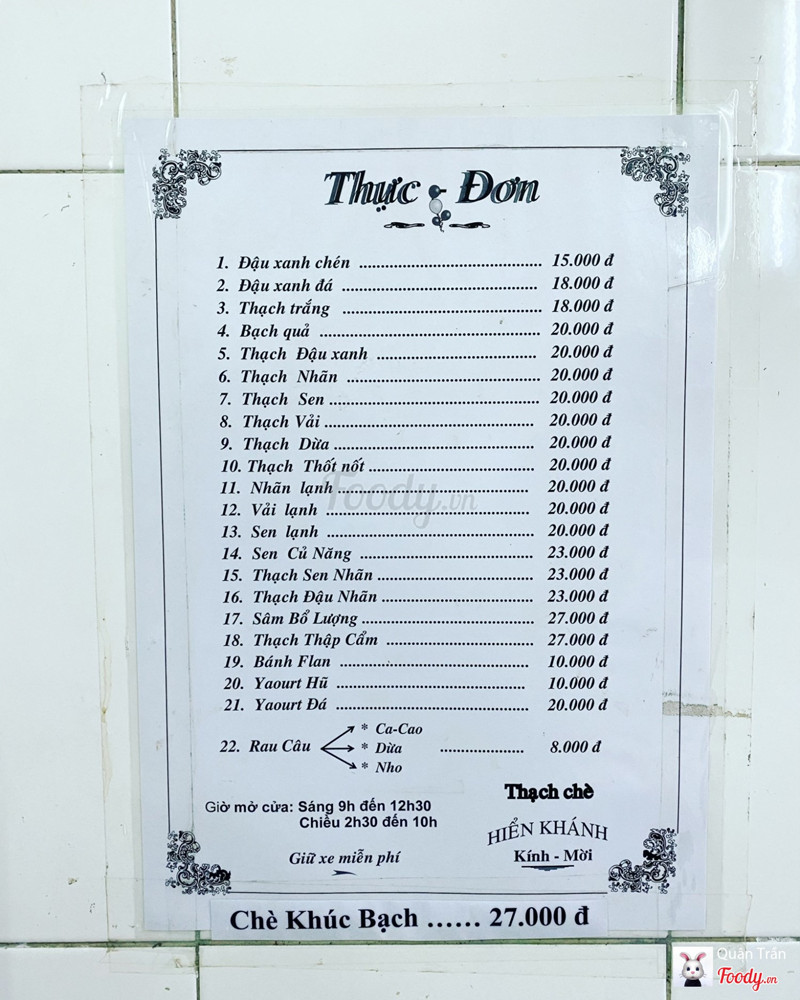 Thực - Đơn
1. Đậu xanh chén ........................................... 15.000 đ
2. Đậu xanh đá ............................................. 18.000 đ
3. Thạch trắng ............................................. 18.000 đ
4. Bạch quả ................................................. 20.000 đ
5. Thạch Đậu xanh ..................................... 20.000 đ
6. Thạch Nhãn ............................................. 20.000 đ
7. Thạch Sen ................................................ 20.000 đ
8. Thạch Vải ................................................ 20.000 đ
9. Thạch Dừa .............................................. 20.000 đ
10. Thạch Thốt nốt ...................................... 20.000 đ
11. Nhãn lạnh ............................................. 20.000 đ
12. Vải lạnh ............................................... 20.000 đ
13. Sen lạnh ............................................... 20.000 đ
14. Sen Củ Năng ........................................ 23.000 đ
15. Thạch Sen Nhãn .................................... 23.000 đ
16. Thạch Đậu Nhãn ................................... 23.000 đ
17. Sâm Bổ Lượng ........................................ 27.000 đ
18. Thạch Thập Cẩm .................................. 27.000 đ
19. Bánh Flan ........................................... 10.000 đ
20. Yaourt Hũ ........................................... 10.000 đ
21. Yaourt Đá ............................................ 20.000 đ
* Ca-Cao
22. Rau Câu * Dừa ..................... 8.000 đ
* Nho
Thạch chè
Giờ mở cửa: Sáng 9h đến 12h30
Chiều 2h30 đến 10h
HIỂN KHÁNH
Kính - Mời
Giữ xe miễn phí
Chè Khúc Bạch ...... 27.000 đ
Foody.vn
Quân Trần
Foody.vn